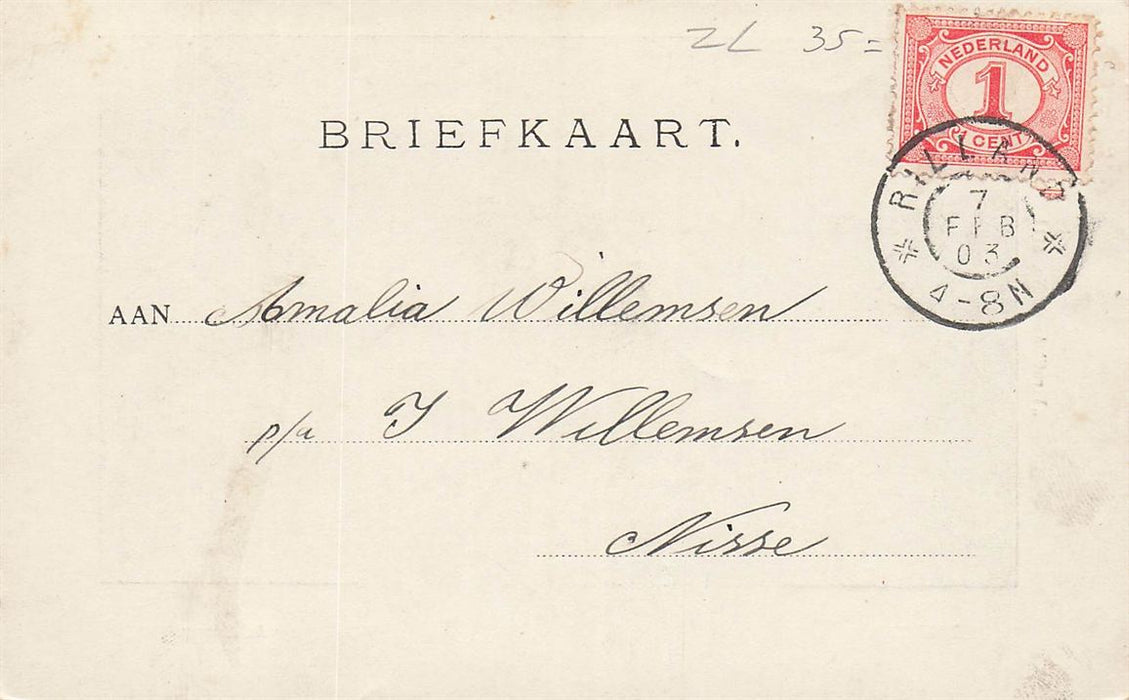 ZL 35=
NEDERLAND
1
1 CENT
BRIEFKAART.
RILLAND
7
FEB
03
4-8N
AAN Amalia Willemsen
p/a J Willemsen
Nisse